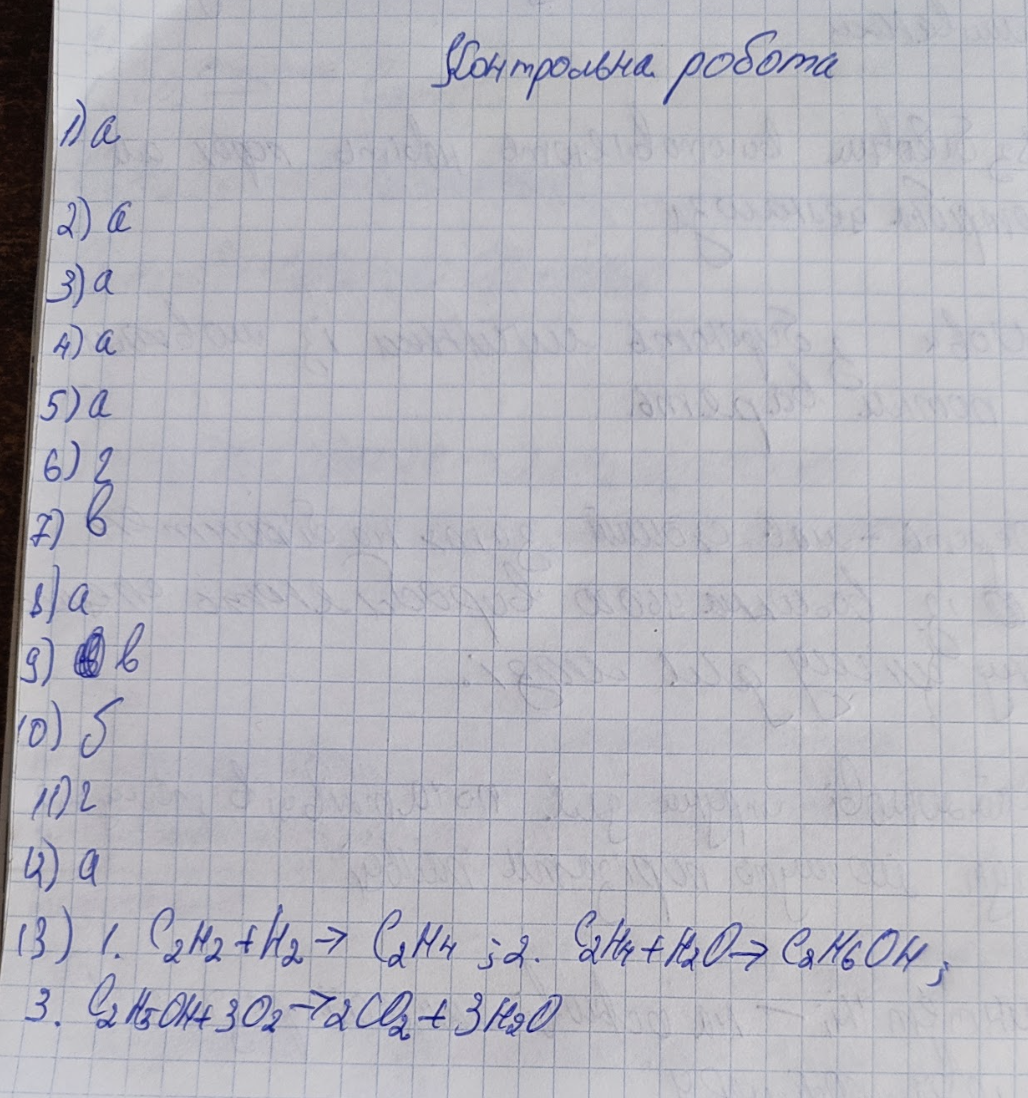 Контрольна робота
1) а
2) а
3) а
4) а
5) а
6) г
7) в
8) а
9) в
10) б
11) г
12) а
13) 1. C₂H₂ + H₂ → C₂H₄ ; 2. C₂H₄ + H₂O → C₂H₆OH ;
3. C₂H₅OH + 3O₂ → 2CO₂ + 3H₂O